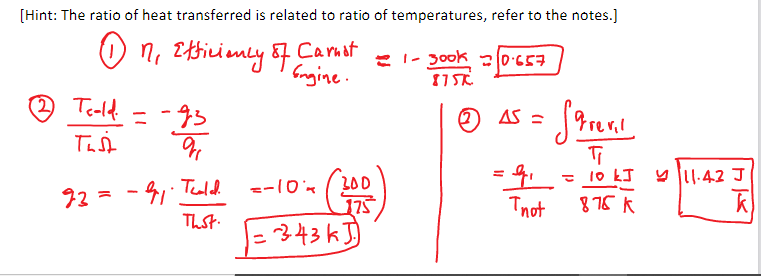 [Hint: The ratio of heat transferred is related to ratio of temperatures, refer to the notes.]
① η, Efficiency of Carnot Engine. = 1 - 300K/875K = 0.657
② Tcold/Thot = - q3/q1
q3 = - q1 · Tcold/Thot. = -10 × (300/875)
= -3.43 kJ
② ΔS = ∫ qrev,1/T1
= q1/Thot = 10 kJ/875 K ⇒ 11.42 J/K